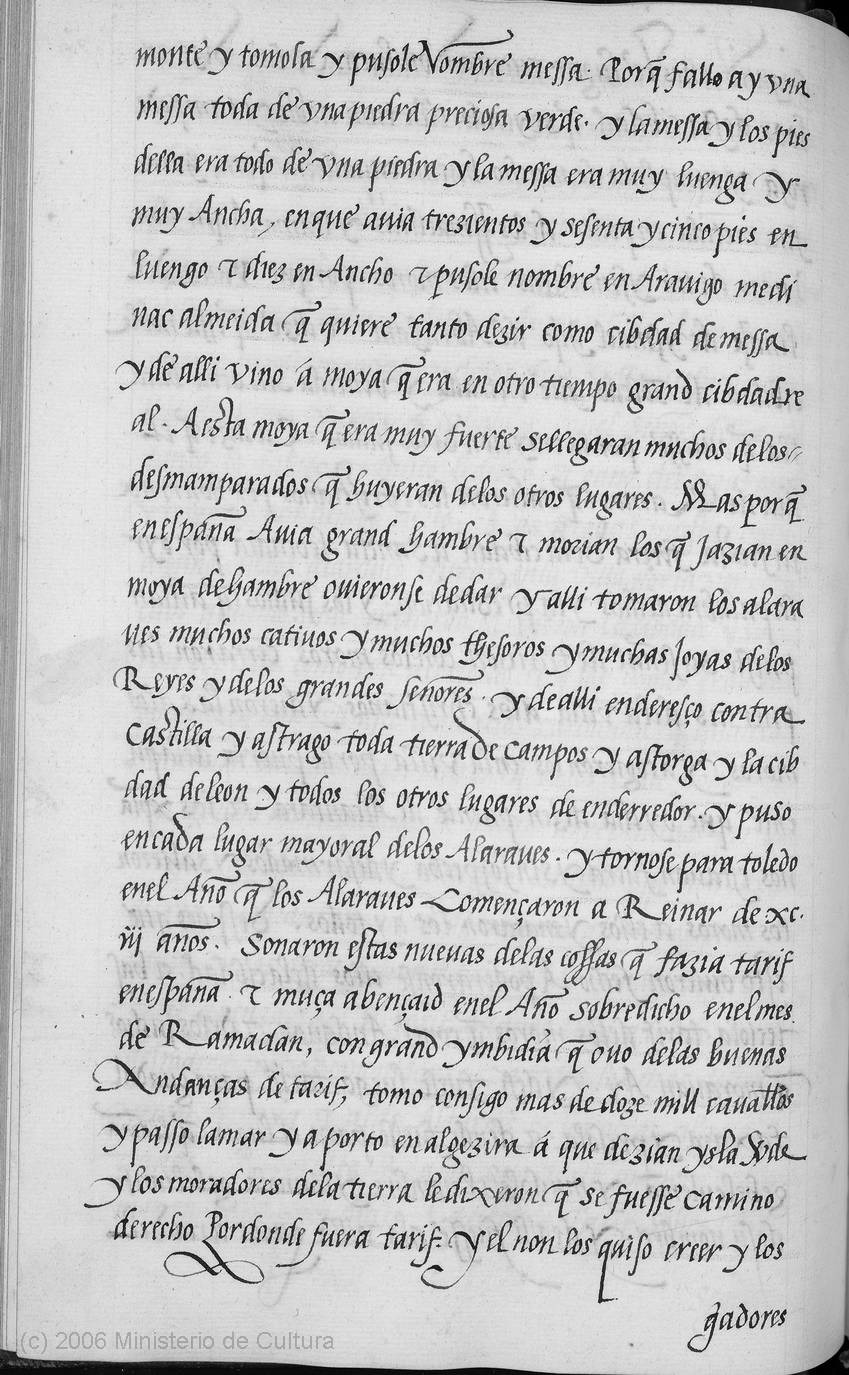 monte y tomola y pusole Nombre messa. Porq̃ fallo ay vna
messa toda de vna piedra preciosa verde. y la messa y los pies
della era todo de vna piedra y la messa era muy luenga y
muy Ancha, en que auia trezientos y sesenta y cinco pies en
luengo τ diez en Ancho τ pusole nombre en Arauigo medi
nac almeida q̃ quiere tanto dezir como cibdad de messa
y de alli vino á moya q̃ era en otro tiempo grand cibdad re
al. A esta moya q̃ era muy fuerte se llegaran muchos de los
desmamparados q̃ huyeran delos otros lugares. Mas porq̃
en espan̄a Auia grand hambre τ morian los q̃ Jazian en
moya de hambre ouieronse de dar y alli tomaron los alara
ues muchos catiuos y muchos thesoros y muchas Joyas delos
Reyes y delos grandes sen̄ores. y de alli endereſço contra
Castilla y astrago toda tierra de campos y astorga y la cib
dad de leon y todos los otros lugares de enderredor. y puso
en cada lugar mayoral delos Alaraues. y tornose para toledo
enel An̄o q̃ los Alaraues Començaron a Reinar de xc.
iii an̄os. Sonaron estas nueuas delas cossas q̃ fazia tarif
en espan̄a. τ muça abençaid enel An̄o sobredicho enel mes
de Ramadan, con grand ymbidia q̃ ouo delas buenas
Andanças de tarif, tomo consigo mas de doze mill cauall̃os
y passo la mar y aporto en algezira á que dezian ysla
y los moradores dela tierra le dixeron q̃ se fuesse camino
derecho Por donde fuera tarif. y el non los quiso creer y los
g̃adores
(c) 2006 Ministerio de Cultura